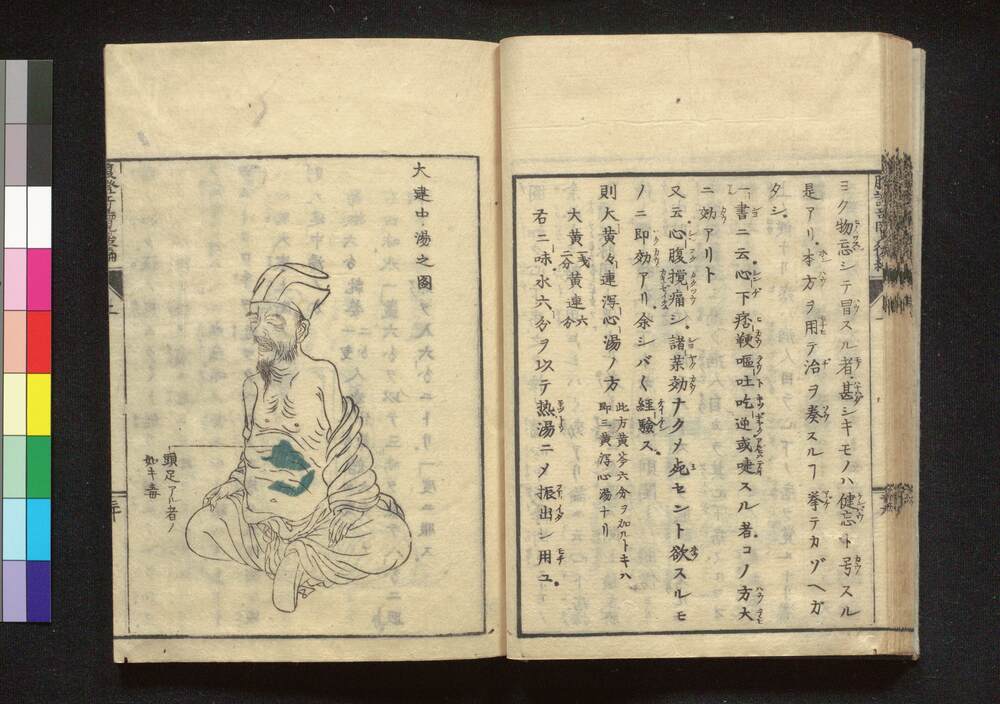 ヨク物忘シテ冒スル者甚シキモノハ健忘ト号スル
是アリ本方ヲ用テ治ヲ奏スルヿ挙テカゾヘガ
タシ
一書ニ云心下痞鞕嘔吐吃逆或噦スル者コノ方大
ニ効アリト
又云心腹撹痛シ諸薬効ナクメ死セント欲スルモ
ノニ即効アリ余シバ〱経驗ス
則大黄々連瀉心湯ノ方 此方黄芩六分ヲ加ルトキハ
即三黄瀉心湯ナリ
大黄一戔二分黄連六分
右二味水六分ヲ以テ熱湯ニメ振出シ用ユ
大建中湯之圖
頭足アル者ノ
如キ毒